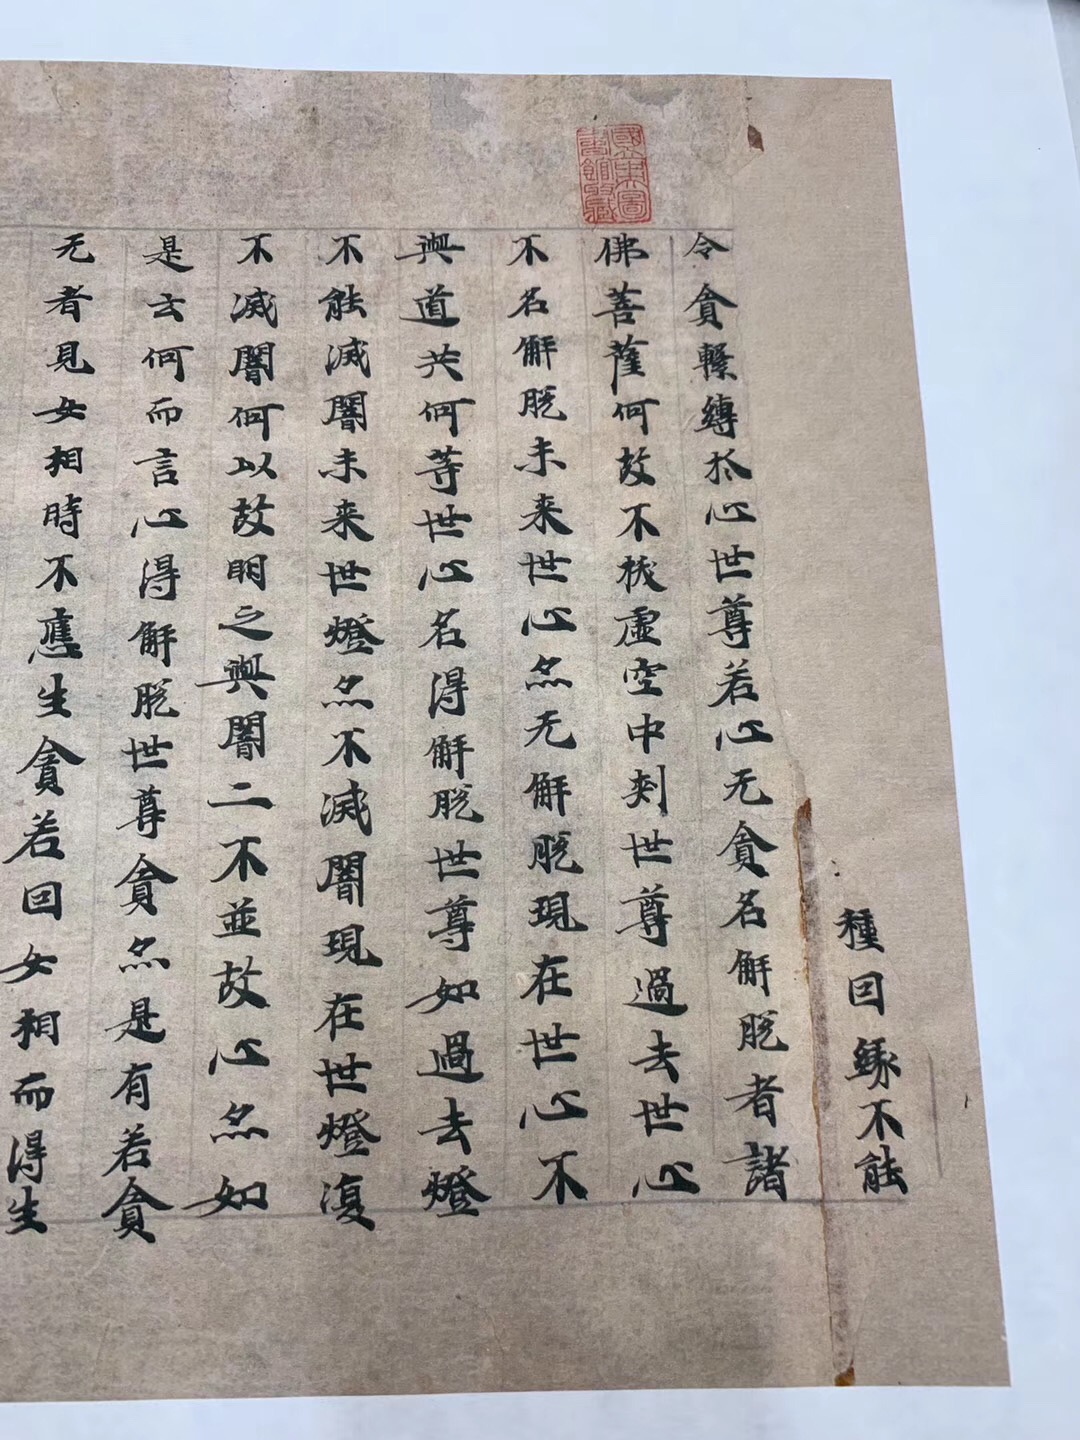 種囙緣不能
令貪繫縛於心世尊若心无貪名解脫者諸
佛菩薩何故不拔虛空中刺世尊過去世心
不名解脫未来世心亦无解脫現在世心不
與道共何等世心名得解脫世尊如過去燈
不能滅闇未来世燈亦不滅闇現在世燈復
不滅闇何以故明之與闇二不並故心亦如
是云何而言心得解脫世尊貪亦是有若貪
无者見女相時不應生貪若囙女相而得生